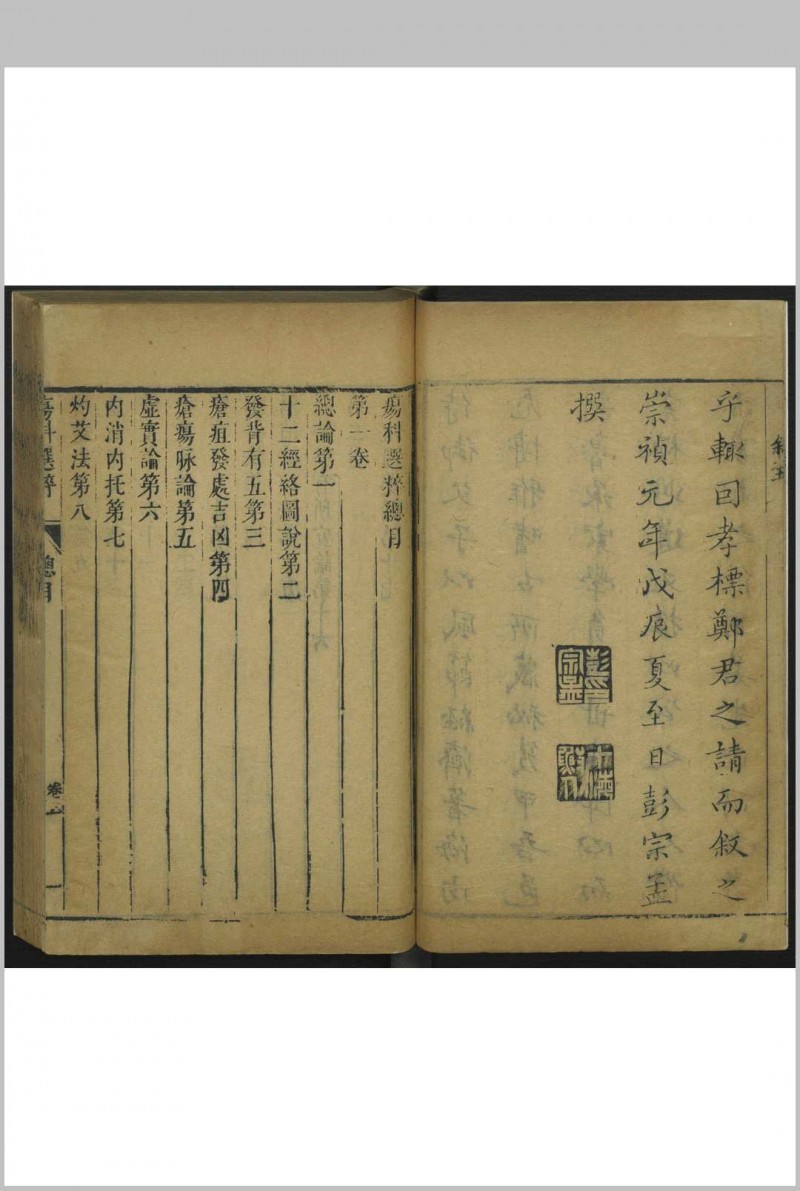 乎輙回孝標鄭君之請而敘之
崇禎元年戊辰夏至日彭宗孟
撰
彭宗孟
瘍科選粹總目
第一卷
總論第一
十二經絡圖說第二
發背有五第三
瘡疽發處吉凶第四
瘡瘍脉論第五
虛實論第六
內消內托第七
灼艾法第八
瘍科選粹
總目